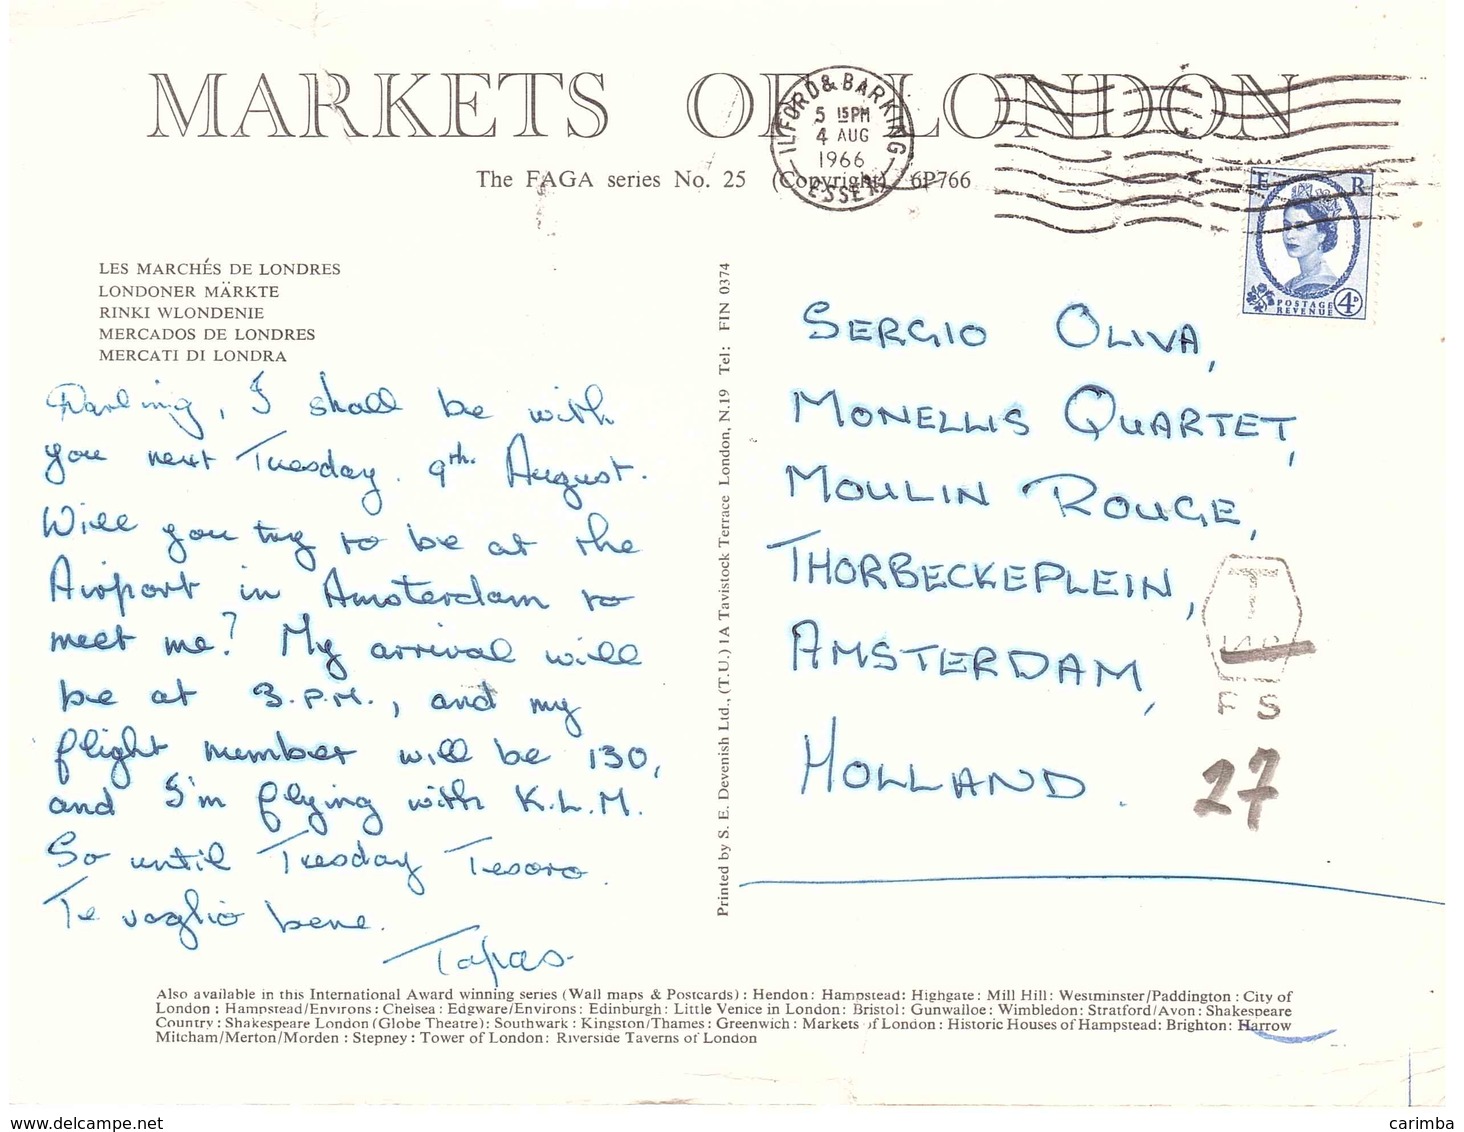 MARKETS OF LONDON
The FAGA series No. 25 (Copyright) 6P766
ILFORD & BARKING
5 15PM
4 AUG
1966
ESSEX
E R
POSTAGE
REVENUE
4D
LES MARCHÉS DE LONDRES
LONDONER MÄRKTE
RINKI WLONDENIE
MERCADOS DE LONDRES
MERCATI DI LONDRA
Darling, I shall be with
you next Tuesday. 9th. August.
Will you try to be at the
Airport in Amsterdam to
meet me? My arrival will
be at 3.P.M., and my
flight number will be 130,
and I'm flying with K.L.M.
So until Tuesday Tesoro.
Te voglio bene.
Printed by S. E. Devenish Ltd., (T.U.) 1A Tavistock Terrace London, N.19 Tel: FIN 0374
SERGIO OLIVA,
MONELLIS QUARTET,
MOULIN ROUGE,
THORBECKEPLEIN,
AMSTERDAM,
HOLLAND.
T
F S
27
Also available in this International Award winning series (Wall maps & Postcards) : Hendon : Hampstead: Highgate : Mill Hill: Westminster/Paddington : City of
London : Hampstead/Environs : Chelsea : Edgware/Environs : Edinburgh : Little Venice in London: Bristol: Gunwalloe: Wimbledon: Stratford/Avon : Shakespeare
Country : Shakespeare London (Globe Theatre): Southwark : Kingston/Thames : Greenwich : Markets of London : Historic Houses of Hampstead: Brighton: Harrow
Mitcham/Merton/Morden : Stepney : Tower of London: Riverside Taverns of London
www.delcampe.net
carimba